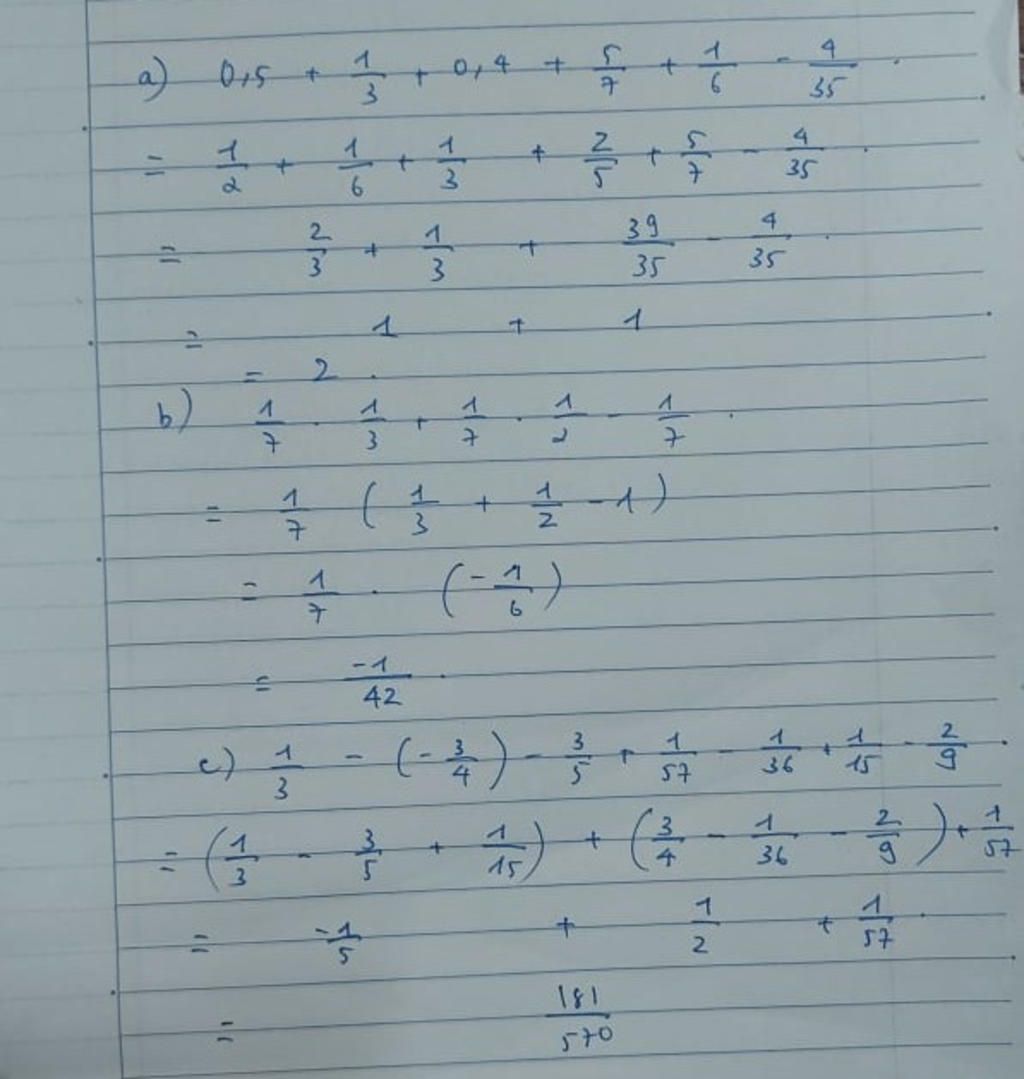 a) 0,5 + 1/3 + 0,4 + 5/7 + 1/6 - 4/35 .
= 1/2 + 1/6 + 1/3 + 2/5 + 5/7 - 4/35 .
= 2/3 + 1/3 + 39/35 - 4/35 .
= 1 + 1
= 2 .
b) 1/7 . 1/3 + 1/7 . 1/2 - 1/7 .
= 1/7 ( 1/3 + 1/2 - 1 )
= 1/7 . ( - 1/6 )
= -1/42 .
c) 1/3 - ( - 3/4 ) - 3/5 + 1/57 - 1/36 + 1/15 - 2/9 .
= ( 1/3 - 3/5 + 1/15 ) + ( 3/4 - 1/36 - 2/9 ) + 1/57
= -1/5 + 1/2 + 1/57 .
= 181/570